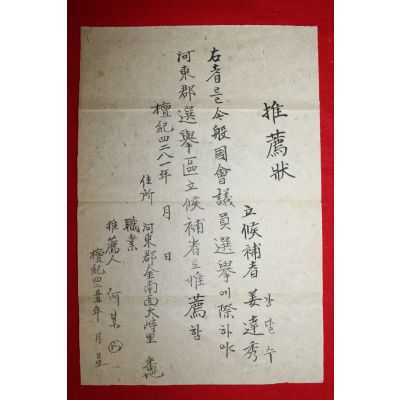 推薦狀
立候補者 姜達秀
강달수
右者를 今般國會議員選擧에際하야
河東郡選擧區立候補者로推薦함
檀紀四二八一年 月 日
住所 河東郡金南面大峙里 番地
職業
推薦人 何某 ㊞
檀紀四二 年 月 日